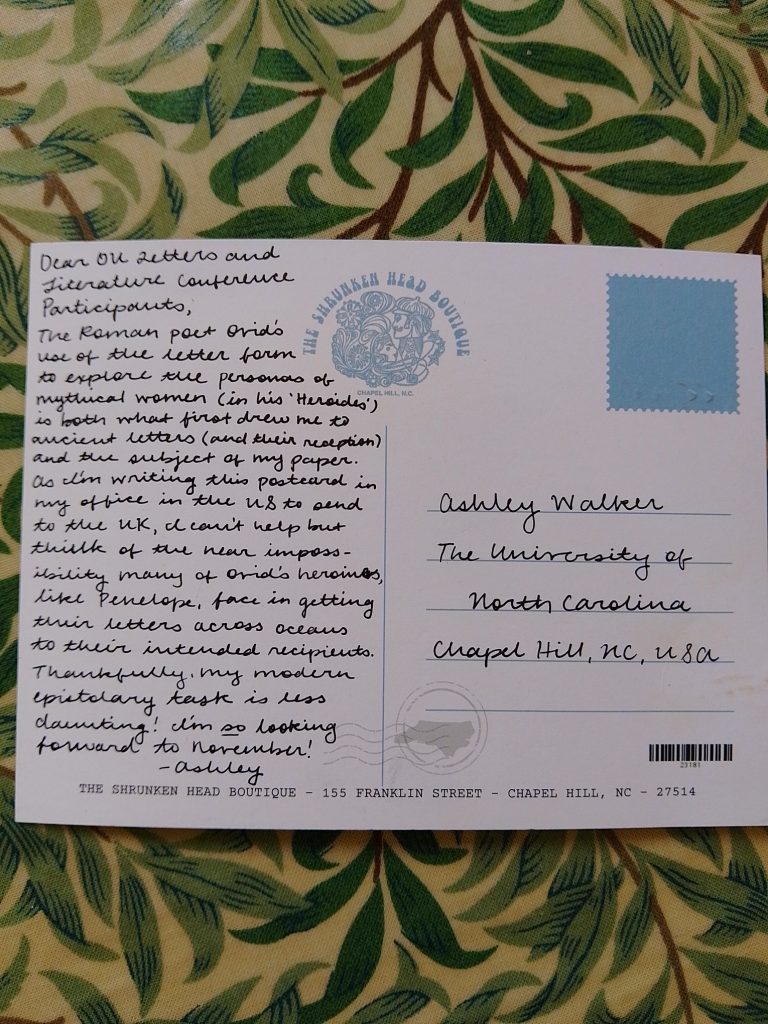 Dear OU Letters and
Literature Conference
Participants,
The Roman poet Ovid's
use of the letter form
to explore the personas of
mythical women (in his 'Heroides')
is both what first drew me to
ancient letters (and their reception)
and the subject of my paper.
As I'm writing this postcard in
my office in the US to send
to the UK, I can't help but
think of the near imposs-
ibility many of Ovid's heroines,
like Penelope, face in getting
their letters across oceans
to their intended recipients.
Thankfully, my modern
epistolary task is less
daunting! I'm so looking
forward to November!
-Ashley
THE SHRUNKEN HEAD BOUTIQUE
CHAPEL HILL, N.C.
Ashley Walker
The University of
North Carolina
Chapel Hill, NC, USA
23181
THE SHRUNKEN HEAD BOUTIQUE - 155 FRANKLIN STREET - CHAPEL HILL, NC - 27514